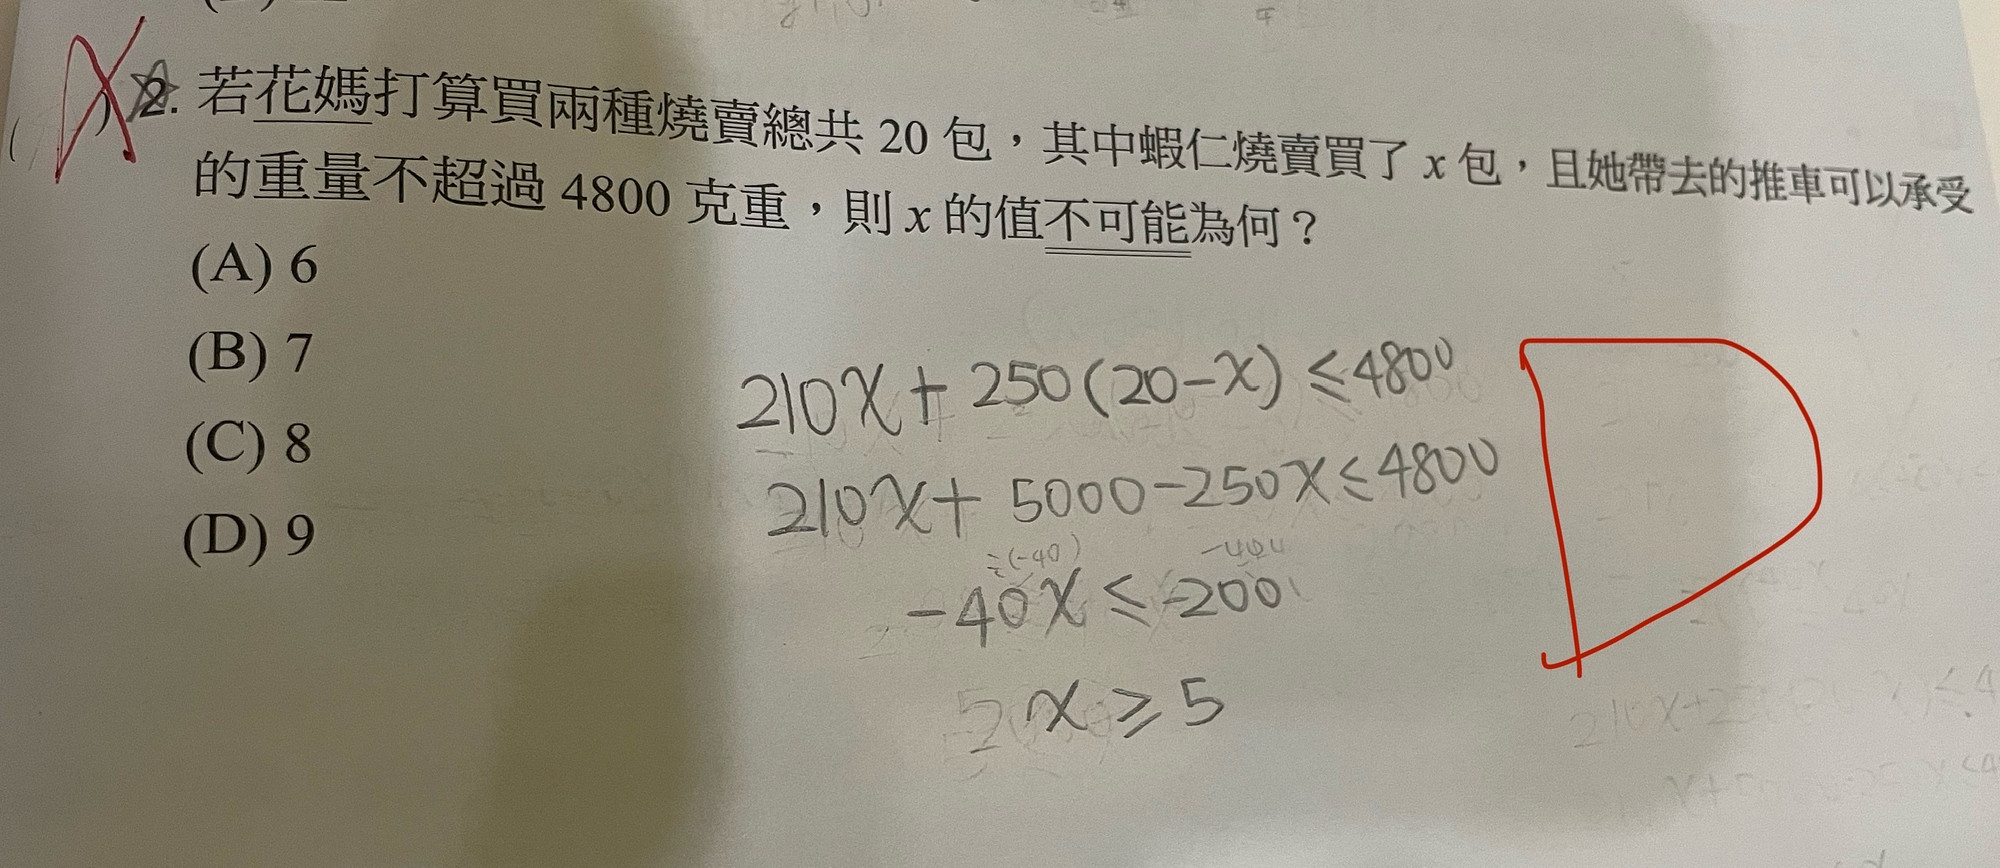 2. 若花媽打算買兩種燒賣總共 20 包，其中蝦仁燒賣買了 x 包，且她帶去的推車可以承受
的重量不超過 4800 克重，則 x 的值不可能為何？
(A) 6
(B) 7
(C) 8
(D) 9
210x + 250(20-x) ≤ 4800
210x + 5000 - 250x ≤ 4800
÷(-40)
-40x ≤ -200
x ≥ 5
D